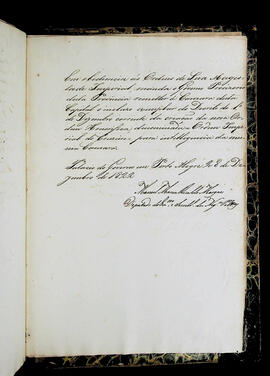 Em obediencia as Ordens de Sua Mages-
tade Imperial, manda o Governo Provisorio
desta Provincia remetter á Camara desta
Capital o incluso exemplar do Decreto de 1º
de Dezembro corrente da creação da nova Or-
dem Honorifica, denominada Ordem Impe-
rial do Cruzeiro, para intelligencia da mes-
ma Camara.
Palacio do Governo em Porto Alegre 28 de De-
zembro de 1822
Manoel Maria
Deputado